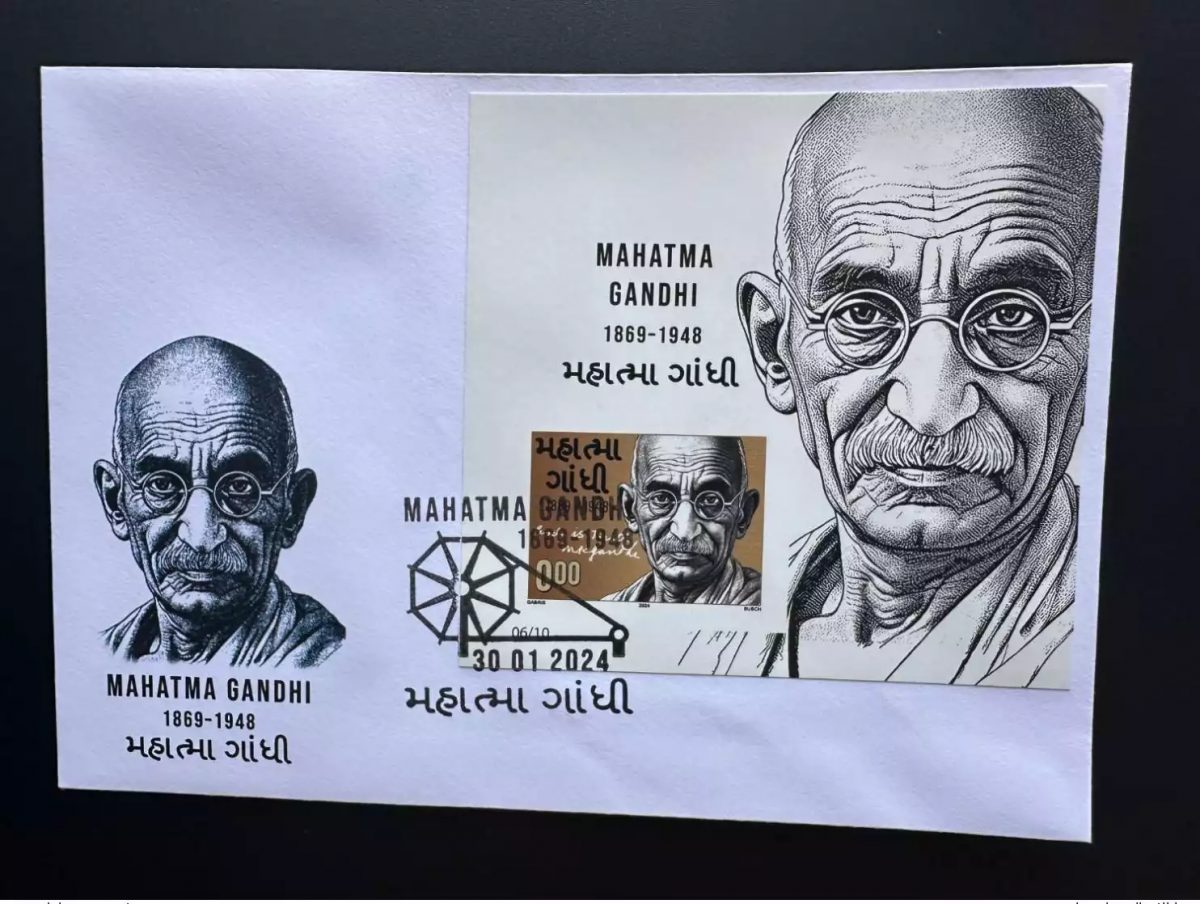 MAHATMA
GANDHI
1869-1948
મહાત્મા ગાંધી
મહાત્મા
ગાંધી
MAHATMA GANDHI
1869-1948
0.00
GABRIS
2024
BUSCH
06/10
30 01 2024
મહાત્મા ગાંધી
MAHATMA GANDHI
1869-1948
મહાત્મા ગાંધી